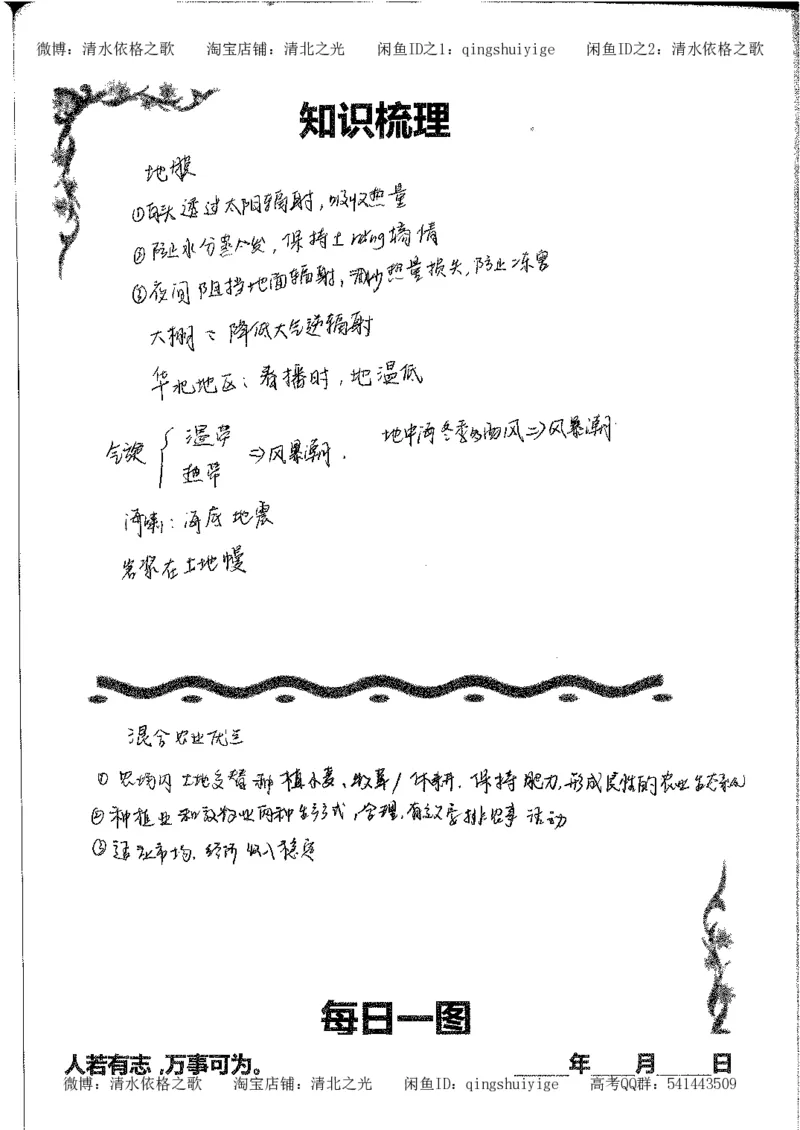 微博：清水依格之歌 淘宝店铺：清北之光 闲鱼ID之1：qingshuiyige 闲鱼ID之2：清水依格之歌
知识梳理
地膜
①白天透过太阳辐射，吸收热量
②防止水分蒸发，保持土rang墒情
③夜间阻挡地面辐射，减少热量损失，防止冻害
大棚：降低大气逆辐射
华北地区：春播时，地温低
气旋 { 温带 热带 ⇒风暴潮. 地中海冬季西风⇒风暴潮
海啸：海底地震
岩浆在土地慢
混合农业优点
①农场内土地交替种植小麦、牧草/休耕. 保持肥力,形成良性的农业生态系统
②种植业和牧牧业两种生产方式,合理,有效安排农事活动
③适应市场. 经济收入稳定
每日一图
人若有志,万事可为。 年 月 日
微博：清水依格之歌 淘宝店铺：清北之光 闲鱼ID：qingshuiyige 高考QQ群：541443509